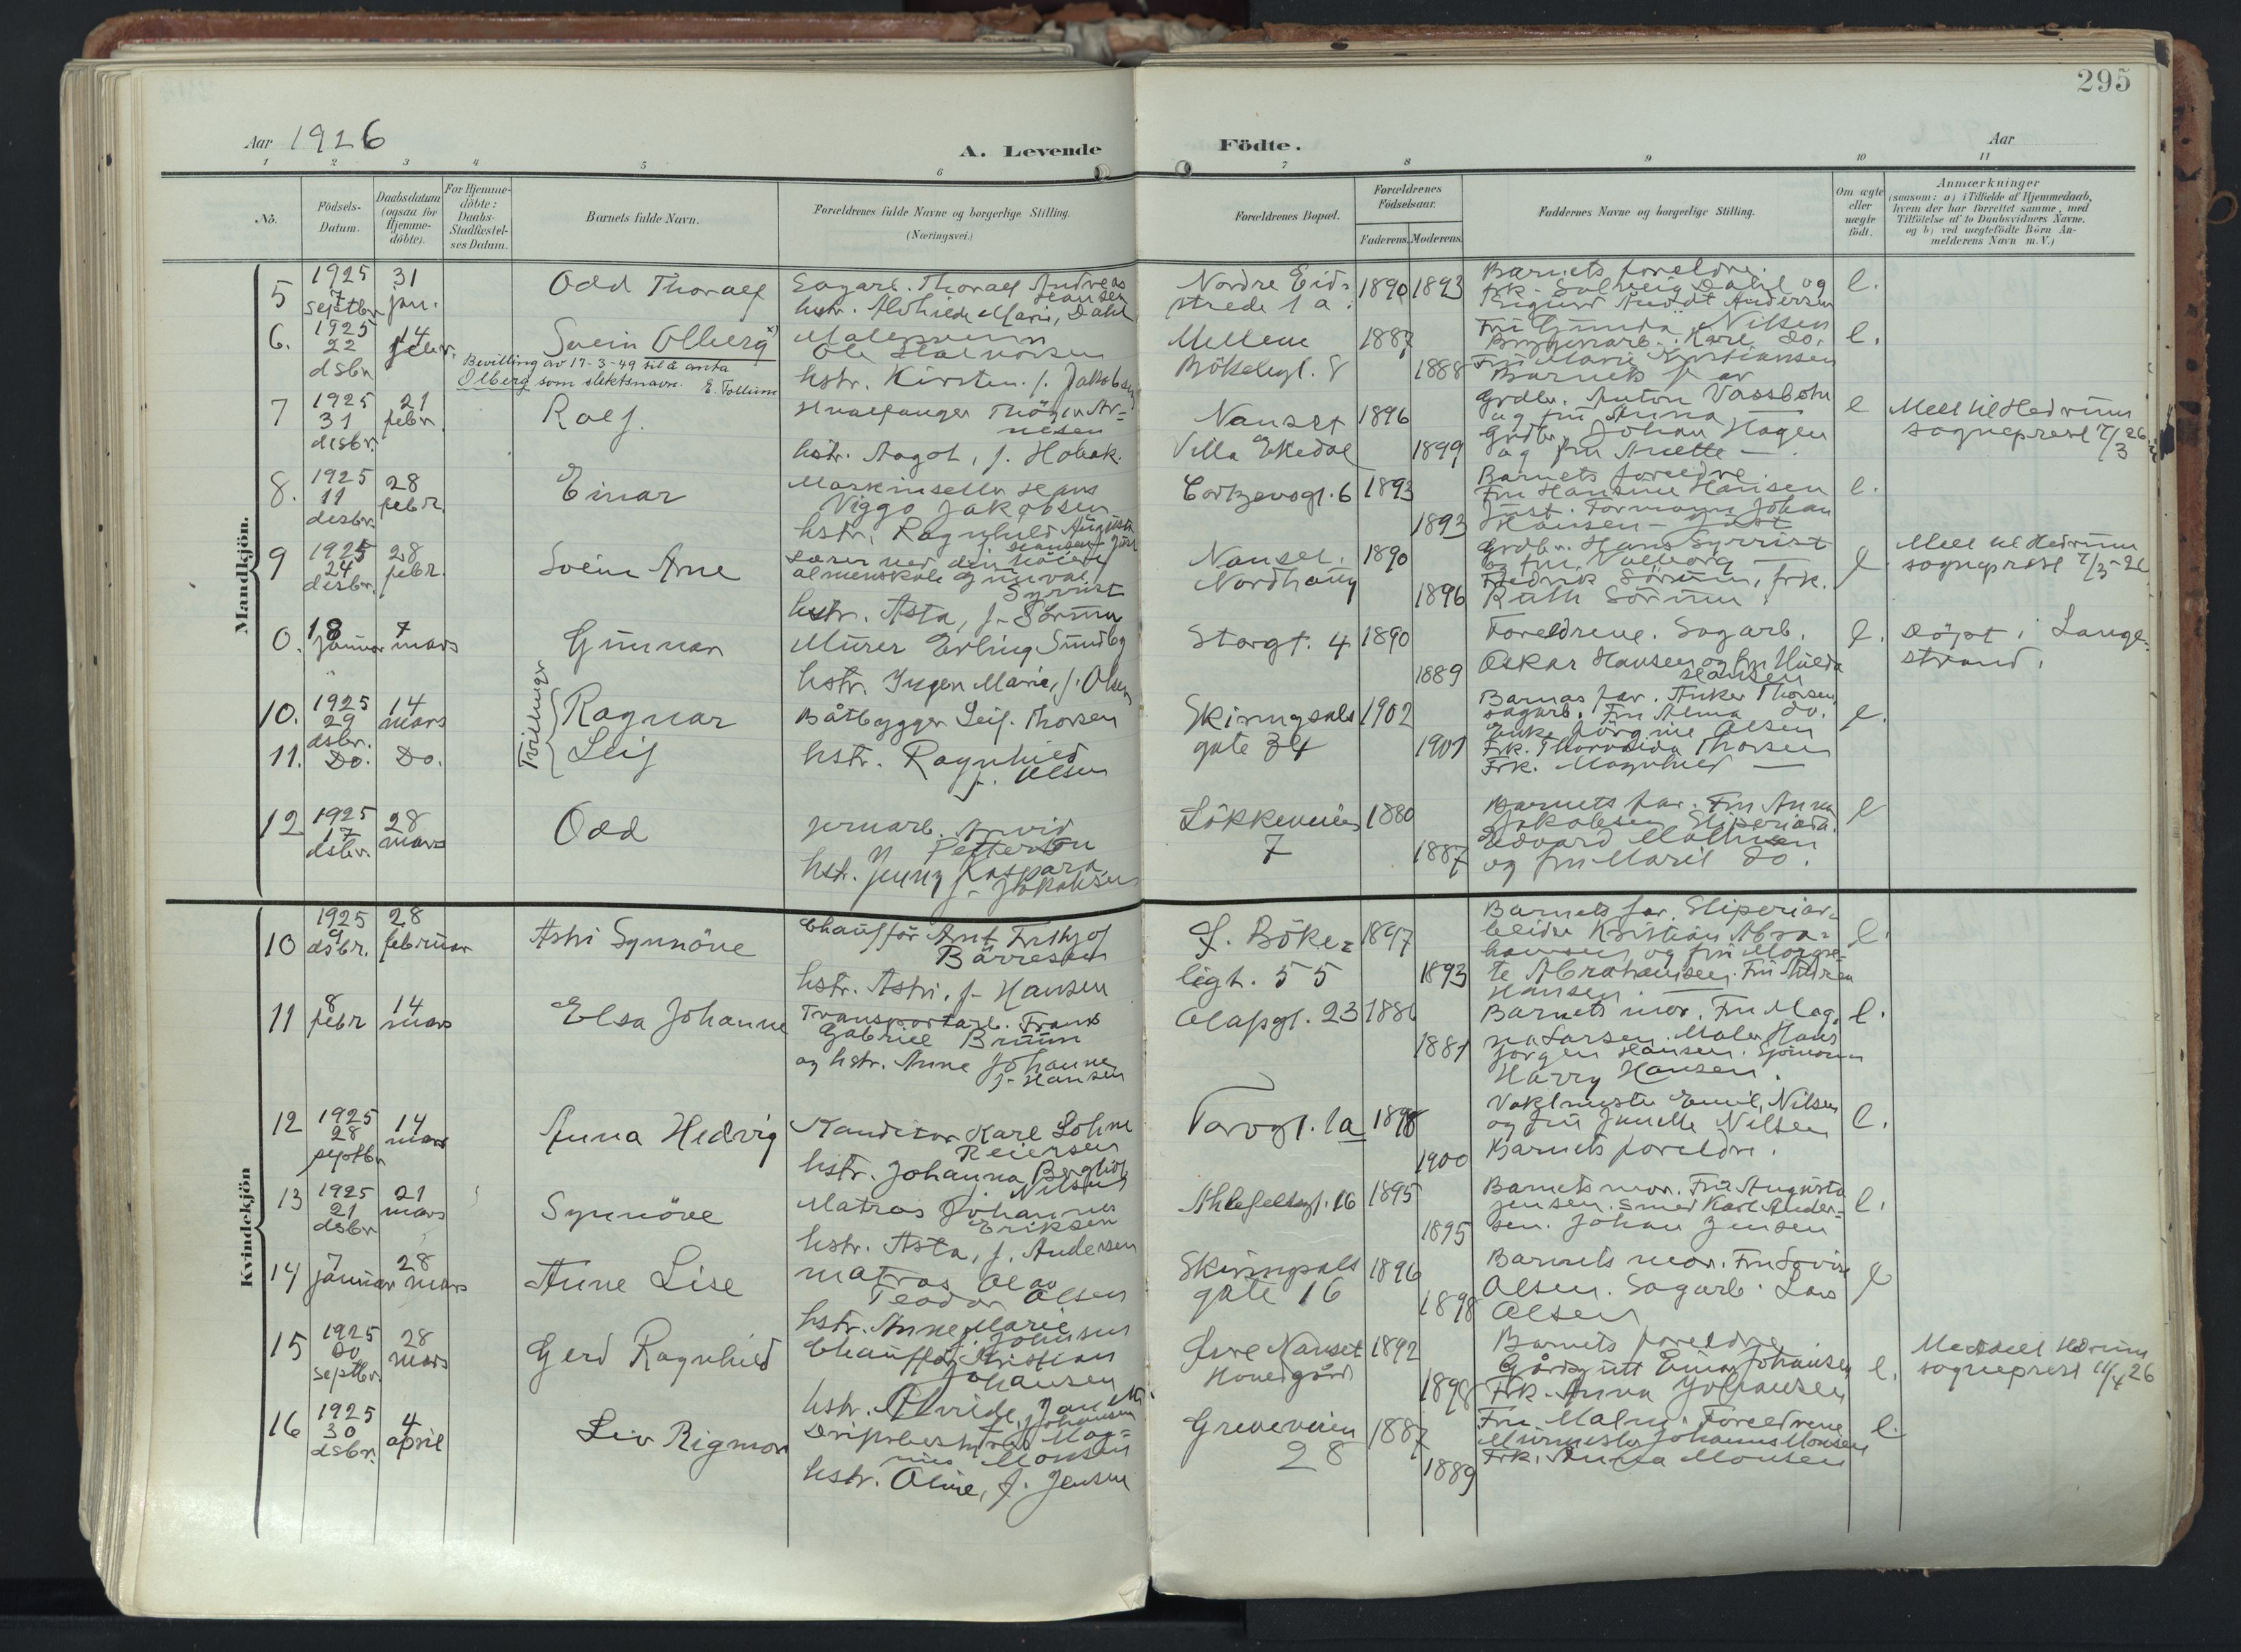 295
Aar 1926
A. Levende Födte.
Aar
1 2 3 4 5 6 7 8 9 10 11
Nö.
Födsels-Datum.
Daabsdatum (ogsaa for Hjemme-döbte).
For Hjemme-döbte: Daabs-Stadfæstel-ses Datum.
Barnets fulde Navn.
Forældrenes fulde Navne og borgerlige Stilling.
(Næringsvei.)
Forældrenes Bopæl.
Forældrenes Födselsaar.
Faderens. Moderens.
Faddernes Navne og borgerlige Stilling.
Om ægte eller uægte födt.
Anmærkninger
(saasom: a) i Tilfælde af Hjemmedaab, hvem der har forrettet samme, med Tilföielse af to Daabsvidners Navne. og b) ved uægtefödte Börn An-melderens Navn m.V.)
Mandkjön.
5 1925 7 septbr 31 jan. Odd Thoralf
Sagarb. Thoralf Andreas Hansen
hstr. Alvhilde Marie, Dahl
Nordre Eidsstrede 1a. 1890 1893
Barnets foreldre.
frk. Solveig Dahl og
Sigurd Andersen
e.
6. 1925 22 dsbr 14 febr. Svein Olberg x)
Bevilling av 17-3-49 til å anta
Olberg som slektsnavn. E. Follum
Malersvenn
Ole Halvorsen
hstr. Kirsten f. Jakobsen
Mellem
Bökeligt. 8 1887 1888
Fru Gunda Nilsen
Bryggeriarb. Kare do.
Fru Marie Kristiansen
Barnets far
e.
7 1925 31 desbr. 21 febr. Ralf.
Hvalfanger Thögen Arnesen
hstr. Aagot, f. Hobæk.
Nanset
Villa Ekedal 1896 1899
Grdbr. Anton Vassbotn
og fru Anna —
Grdbr. Johan Hagen
og fru Anette —.
e
Medd til Hedrum
sogneprest 7/3 26
8. 1925 11 desbr. 28 febr. Einar
Maskinsetter Hans
Viggo Jakobsen
hstr. Ragnhild Augusta
Cortzensgt. 6 1893 1893
Barnets foreldre.
Fru Hansine Hansen
Just. Formann Johan
Hansen - Just
e.
9 1925 24 desbr. 28 febr. Svein Arne
Lærer ved den höiere
almenskole Gunval
Syrrist
hstr. Asta, f. Sörum
Nanset.
Nordhaug 1890 1896
Grdbr. Hans Syrrist
og fru Valborg —
Fredrik Sörum, frk.
Ruth Sörum.
e
Medd til Hedrum
sogneprest 7/3-26
0. 18 januar 7 mars Gunnar
Murer Erling Sundby
hstr. Inger Marie, f. Olsen
Storgt. 4 1890 1889
Foreldrene. Sagarb.
Oskar Hansen og fru Hulda
Hansen
e.
Döpt i Lange-
strand.
10. 1925 29 dsbr. 14 mars Ragnar
11. Do. Do. Leif
Tvillinger
Båtbygger Leif Thorsen
hstr. Ragnhild
f. Olsen
Skiringsals
gate 34 1902 1901
Barnas far. Anker Thorsen
sagarb. Fru Alma do.
Enke Jörgine Olsen
Frk. Thorvalda Thorsen
Frk. Magnhild —
e.
12 1925 17 dsbr. 28 mars Odd
jernarb. Arvid
Petterson
hst. Jenny Kaspara
f. Jakobsen
Lökkeveien
7 1880 1887
Barnets far. Fru Anna
Jakobsen Sliperiarb.
Edvard Mathisen
og fru Maril do.
e
Kvindekjön
10 1925 9 dsbr. 28 februar Astri Synnöve
Chaufför Ant. Fritjof
Bärresen
hstr. Astri, f. Hansen
S. Böke-
ligt. 55 1897 1893
Barnets far. Sliperiar-
beider Kristian Abra-
hamsen og fru Margre-
te Abrahamsen. Fru Andrea
Hansen.
e.
11 8 febr 14 mars Elsa Johanne
Transportarb. Frans
Gabriel Bruun
og hstr. Anne Johanne
f. Hansen
Olafsgt. 23 1886 1881
Barnets mor. Fru Mag-
na Larsen. Maler Hans
Jörgen Hansen. Sjömann
Harry Hansen.
e.
12 1925 28 septbr 14 mars Anna Hedvig
Konditor Karl Lohne
Reiersen
hstr. Johanna Bergliot
Nilsen
Torvgt. 1a 1898 1900
Vaktmester Emil Nilsen
og fru Nilsen
Barnets foreldre.
e.
13 1925 21 dsbr 21 mars Synnöve
Matros Johannes
Eriksen
hstr. Asta, f. Andersen
Ahlefeltsgt. 16 1895 1895
Barnets mor. Fru Augusta
Jensen. Smed Karl Ander-
sen. Johan Jensen
e.
14 7 januar 28 mars Anne Lise
matros Olav
Teodor Olsen
hstr. Anne Marie
f. Johnsen
Skiringsals
gate 16 1896 1898
Barnets mor. Fru Lovise
Olsen. Sagarb. Lars
Olsen
e
15 1925 20 septbr 28 mars Gerd Ragnhild
Chaufför Kristian
Johansen
hstr. Alvilde
f. Johansen
Övre Nanset
Hovedgård 1892 1898
Barnets foreldre
Gårdsgutt Einar Johansen
Frk. Anna Johansen
e.
Meddelt Hedrum
sogneprest 11/4 26
16 1925 30 dsbr. 4 april Liv Rigmor
Driftsbestyrer Mag-
nus Monsen
hstr. Oline, f. Jensen
Greveveien
28 1887 1889
Fru Malm. Foreldrene
Murmester Johannes Monsen
Frk. Anna Monsen
e.